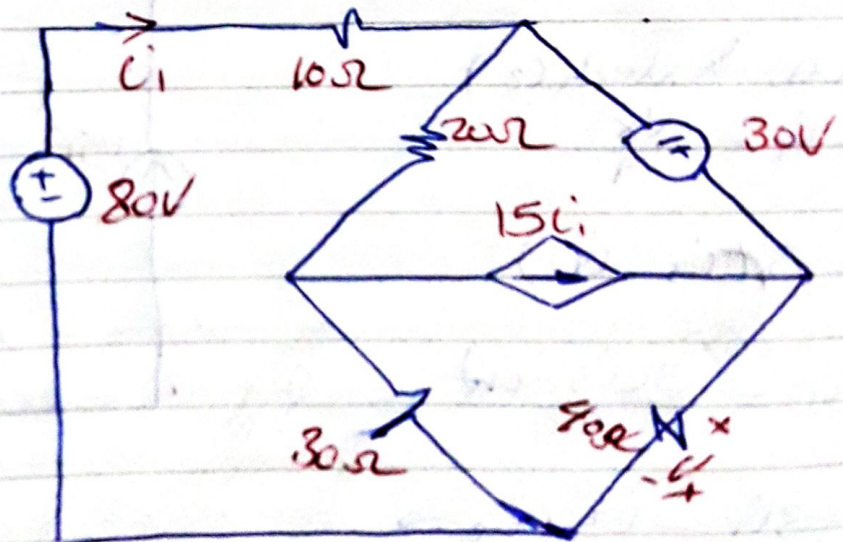 i₁
10Ω
20Ω
30V
+
-
80V
15i₁
30Ω
+
-